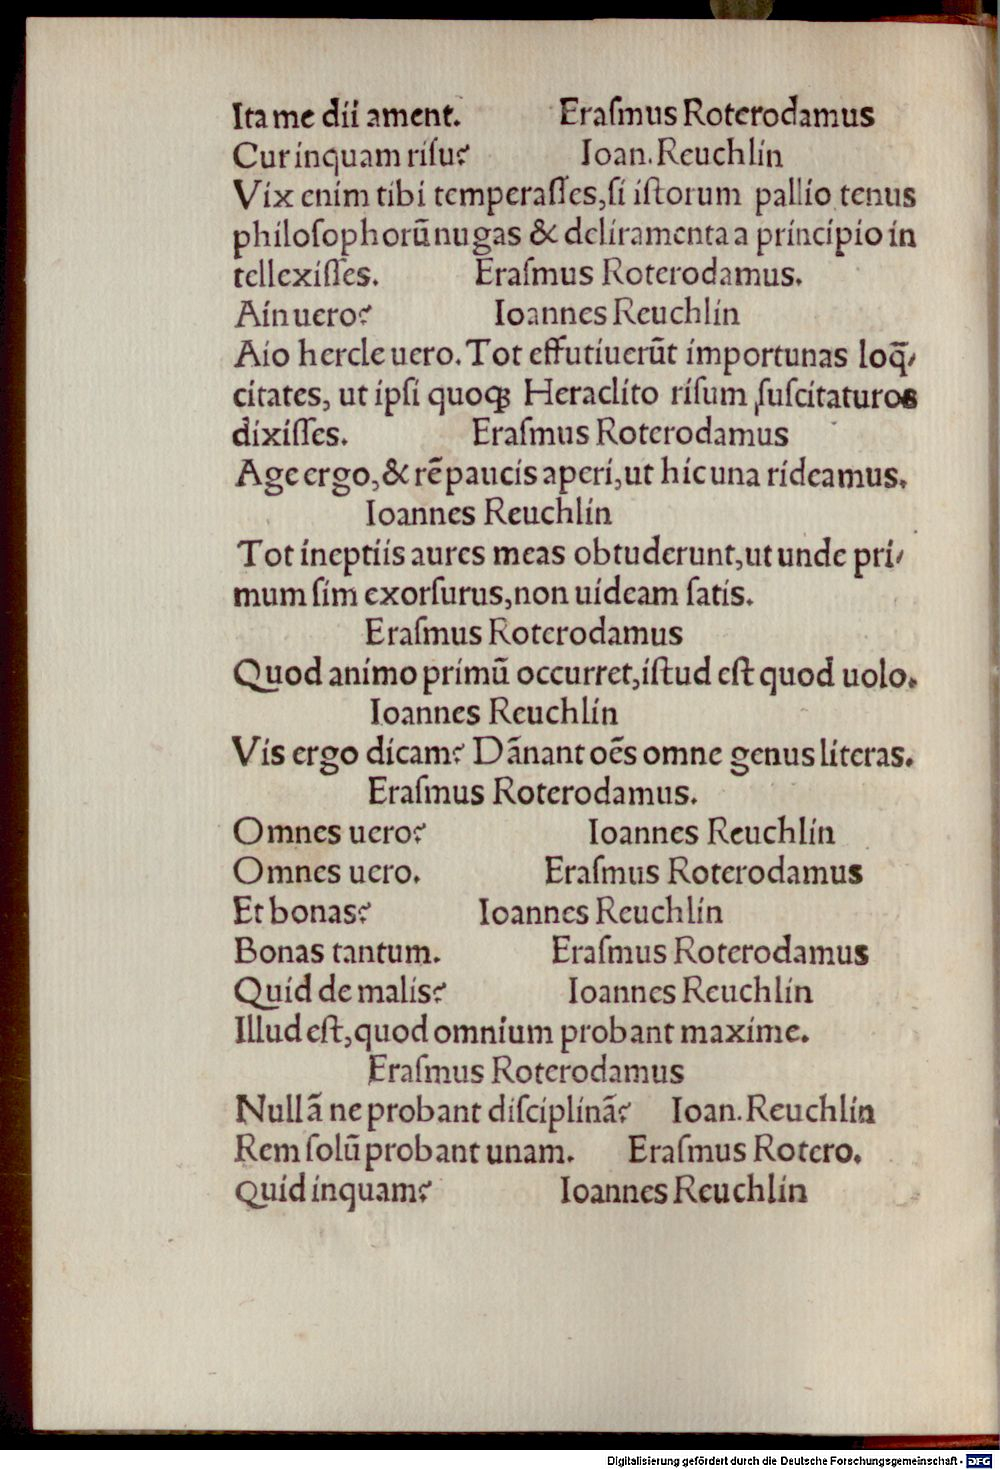 Ita me dii ament. Eraſmus Roterodamus
Cur inquam riſu? Ioan. Reuchlin
Vix enim tibi temperaſſes, ſi iſtorum pallio tenus
philoſophorũ nugas & deliramenta a principio in
tellexiſſes. Eraſmus Roterodamus.
Ain uero? Ioannes Reuchlin
Aio hercle uero. Tot effutiuerũt importunas loq̃⸗
citates, ut ipſi quoqꝫ Heraclito riſum ſuſcitaturos
dixiſſes. Eraſmus Roterodamus
Age ergo, & rẽ paucis aperi, ut hic una rideamus.
Ioannes Reuchlin
Tot ineptiis aures meas obtuderunt, ut unde pri⸗
mum ſim exorſurus, non uideam ſatis.
Eraſmus Roterodamus
Quod animo primũ occurret, iſtud eſt quod uolo.
Ioannes Reuchlin
Vis ergo dicam? Dãnant oẽs omne genus literas.
Eraſmus Roterodamus.
Omnes uero? Ioannes Reuchlin
Omnes uero. Eraſmus Roterodamus
Et bonas? Ioannes Reuchlin
Bonas tantum. Eraſmus Roterodamus
Quid de malis? Ioannes Reuchlin
Illud eſt, quod omnium probant maxime.
Eraſmus Roterodamus
Nullã ne probant diſciplinã? Ioan. Reuchlin
Rem ſolũ probant unam. Eraſmus Rotero.
Quid inquam? Ioannes Reuchlin
Digitalisierung gefördert durch die Deutsche Forschungsgemeinschaft - DFG